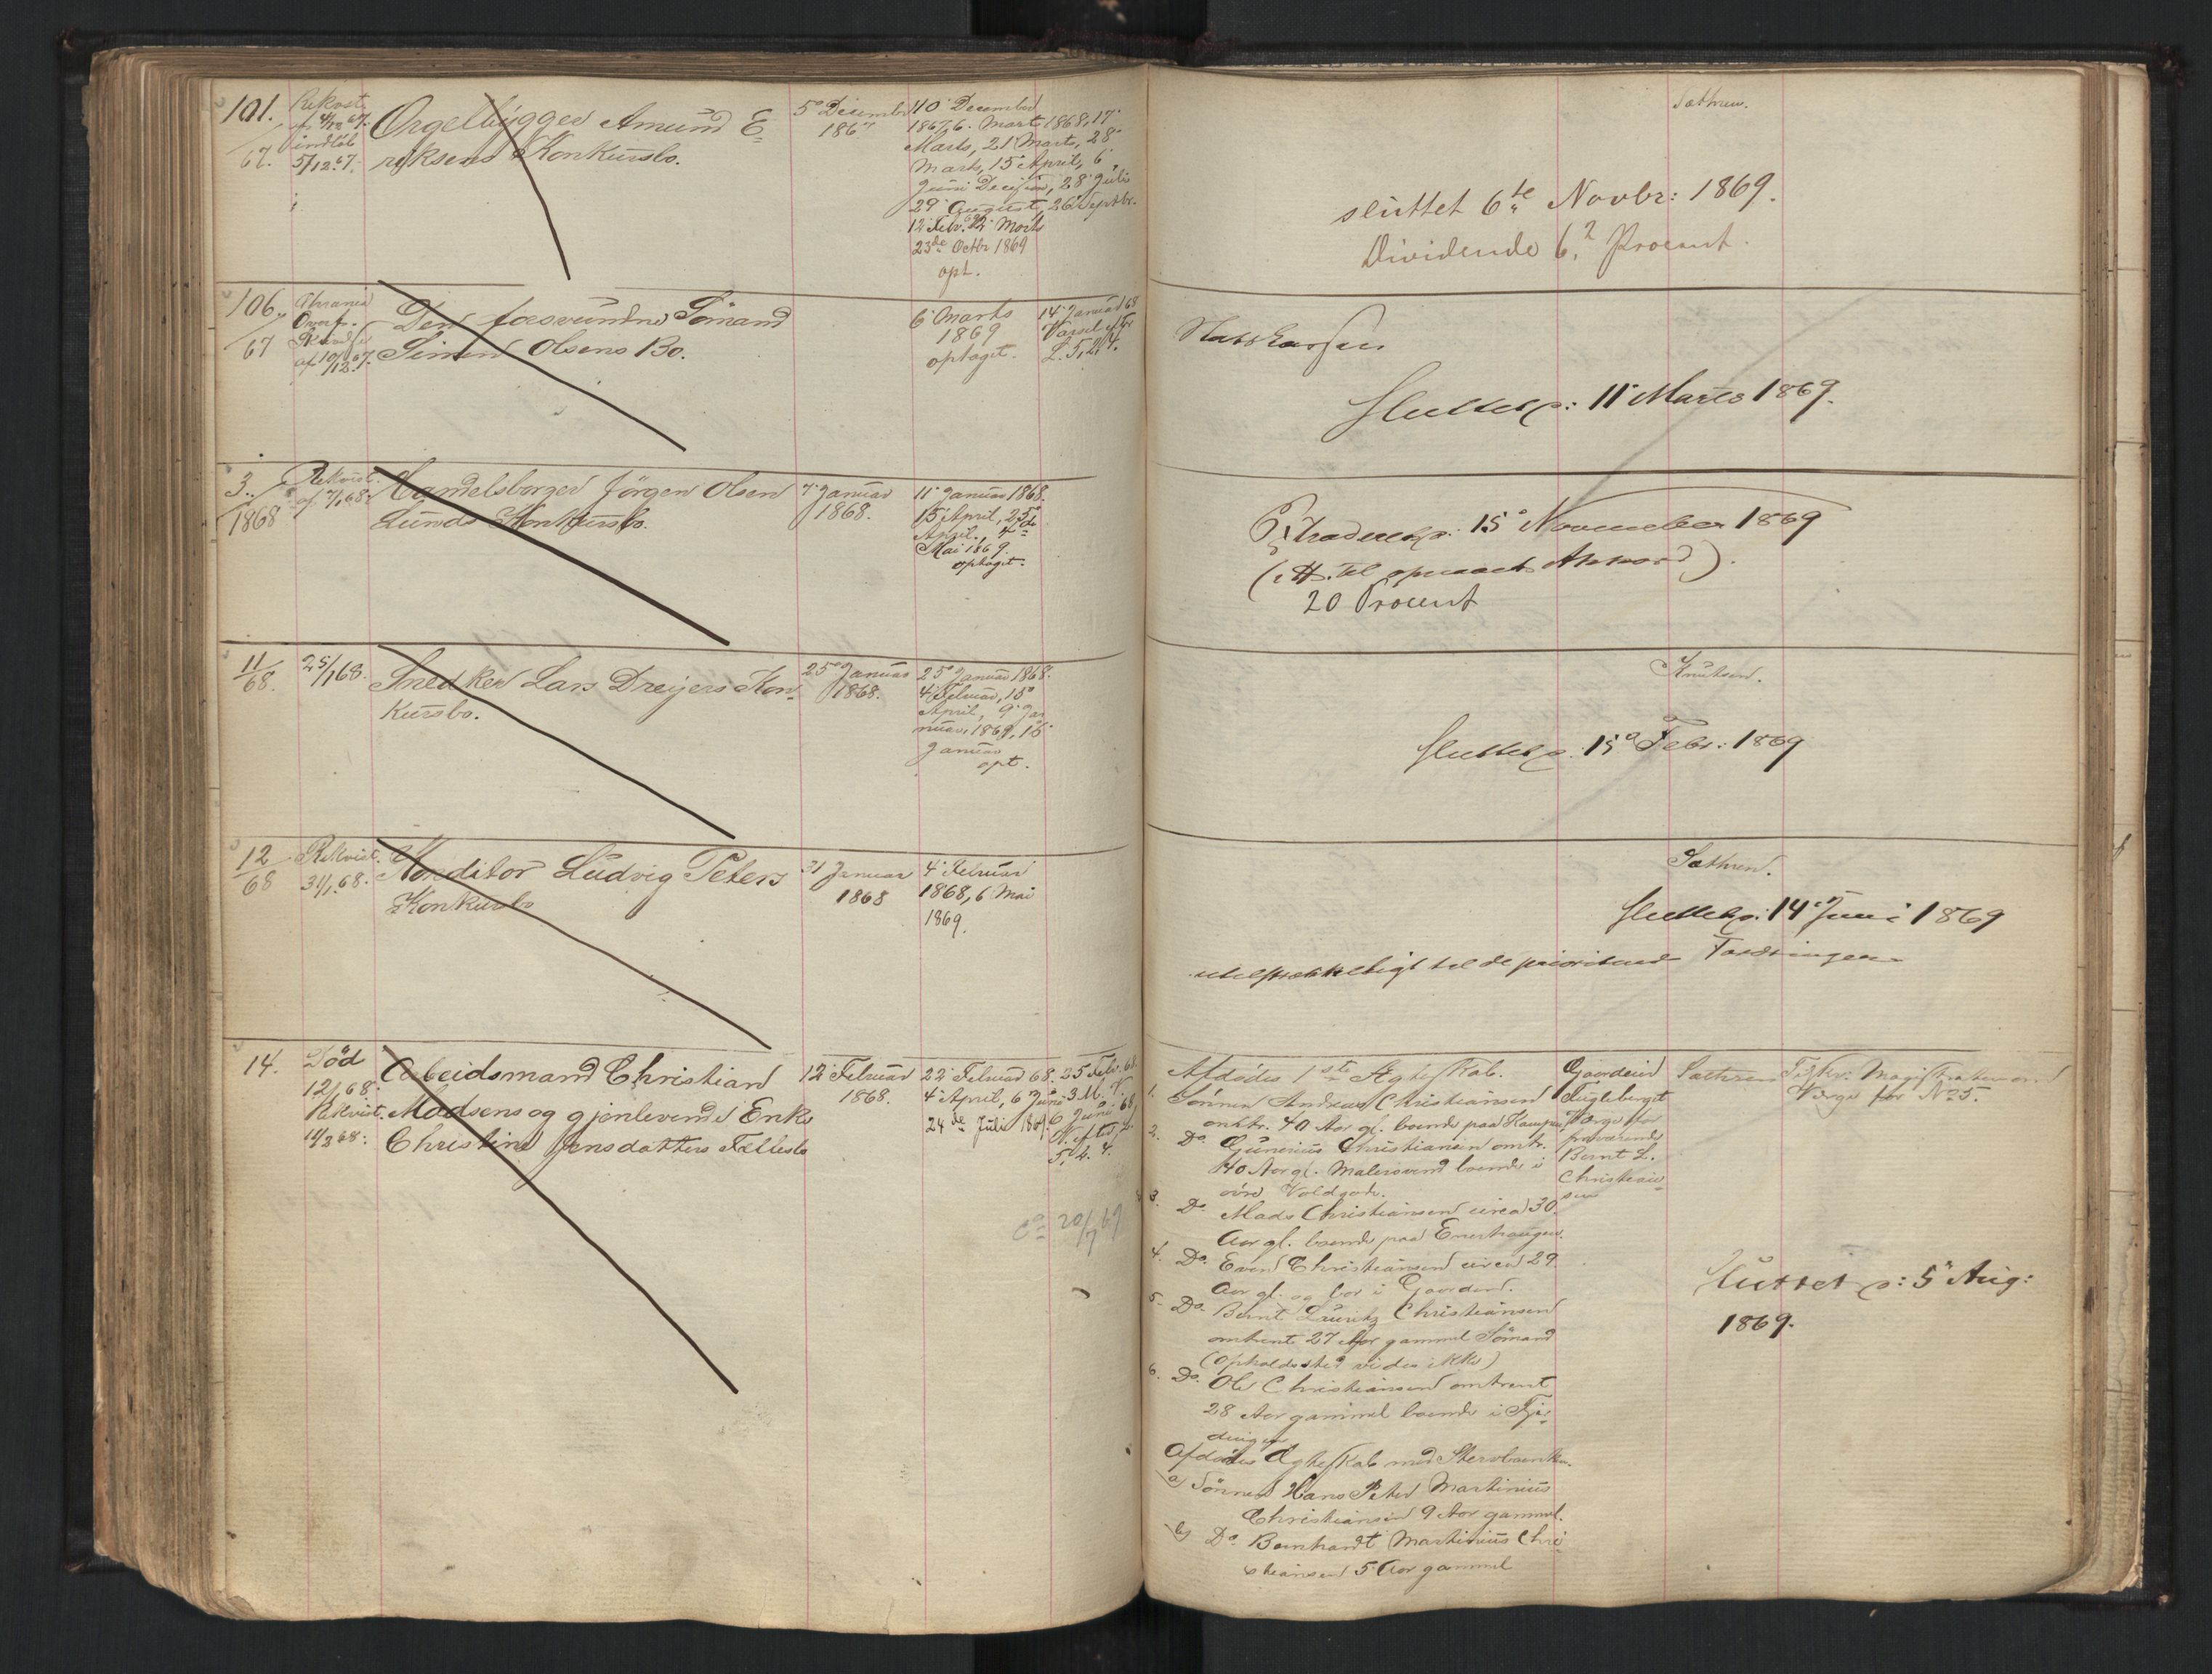 101.
67.
Rekvst.
af 4/12 67.
indlöb
5/12 67.
Orgelbygger Amund E
riksens Konkursbo.
5' December
1867
10' December
1867, 6. Marts 1868, 17'
Marts, 21 Marts, 28'
Marts, 15 April, 6
Juni Decision, 28' Juli
29' August, 26 Septbr.
12 Febr. 69 Marts
23de Octbr 1869
opt.
Sathren.
sluttet 6te Novbr: 1869.
Dividende 6, Procent.
106.
67
af 10/12 67.
Den forsvundne Sömand
Simen Olsens Bo.
6' Marts
1869
optaget.
14' Januar 68
Varsel efter
L. 5, 2, 4.
Sluttet p: 11' Marts 1869.
3.
1868
Rekvist.
af 7/1 68.
Handelsborger Jörgen Olsen
Lunds Konkursbo.
7' Januar
1868.
11' Januar 1868.
15' April, 25'
April, 4de
Mai 1869.
optaget.
Extraderet p: 15' November 1869
(i H. til opnaaet Akkord).
20 Procent
11
68.
25/1 68.
Snedker Lars Dreijers Kon-
kursbo.
25' Januar
1868.
25' Januar 1868.
4' Februar, 15'
April, 9' Ja
nuar 1869, 16'
Januar
opt.
Knutsen.
Sluttet p: 15' Febr: 1869
12
68
Rekvist.
31/1 68.
Konditor Ludvig Peters
Konkursbo
31 Januar
1868
4' Februar
1868, 6 Mai
1869.
Sathren.
Sluttet p: 14' Juni 1869
utilstrækkeligt til de prioriterede Fordringer
14.
Död
12/1 68.
Rekvist.
11/2 68.
Arbeidsmand Christian
Madsens og gjenlevende Enke
Christine Jensdatters Fællesbo
12' Februar
1868.
22' Februar 68.
4' April, 6 Juni
24de Juli 1869.
25 Febr. 68.
3 M. V.
6 Juni 68
V. efter L.
5, 2, 4.
20/7 69
Afdödes 1ste Ægteskab.
1. Sönnen Andreas Christiansen
omtr. 40 Aar gl. boende paa Kampen
2. Do Gunerius Christiansen omtr.
40 Aar gl. Malersvend boende i
övre Voldgade.
3. Do Mads Christiansen circa 30
Aar gl. boende paa Enerhaugen.
4. Do. Even Christiansen circa 29
Aar gl. og bor i Gaarden.
5. Do. Bernt Lauritz Christiansen
omtrent 27 Aar gammel Sömand
(Opholdssted vides ikke)
6. Do. Ole Christiansen omtrent
28 Aar gammel boende i Fjer-
dingen
Afdödes Ægteskab med Stervboenken.
a) Sönnen Hans Peter Martinius
Christiansen 9 Aar gammel.
b) Do. Bernhardt Martinius Chri-
stiansen 5 Aar gammel
Gaardeier
Fugleberget
Værge for
fraværende
Bernt L.
Christian-
sen
Sathren
Tilskr. Magistraten om
Værge for No 5.
sluttet p: 5' Aug:
1869.